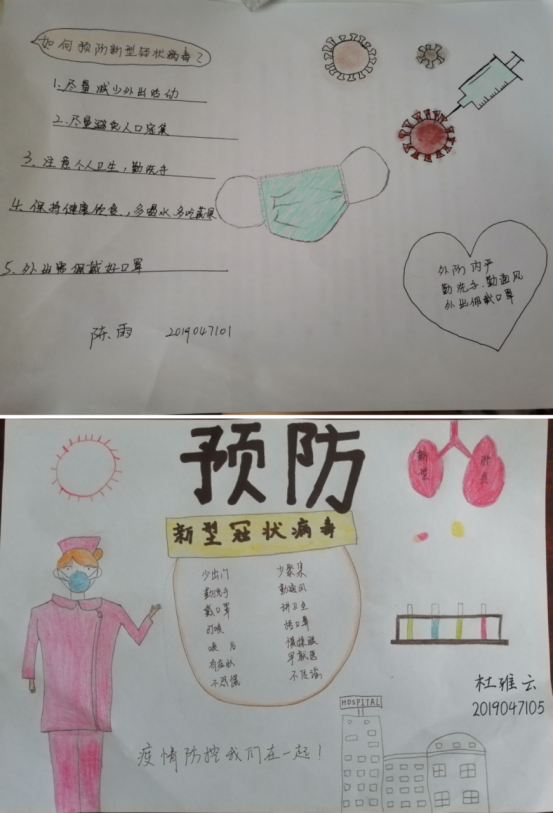 如何预防新型冠状病毒？
1.尽量减少外出活动
2.尽量避免人口密集
3.注意个人卫生，勤洗手
4.保持健康饮食，多喝水多吃蔬果
5.外出需佩戴好口罩
外防内严
勤洗手、勤通风
外出佩戴口罩
陈雨 2019047101
预防
新型冠状病毒
新型 肺炎
少出门 少聚集
勤洗手 勤通风
戴口罩 讲卫生
打喷 捂口鼻
喷后 慎揉眼
有症状 早就医
不恐慌 不传谣
杜雅云
2019047105
HOSPITAL
疫情防控我们在一起！